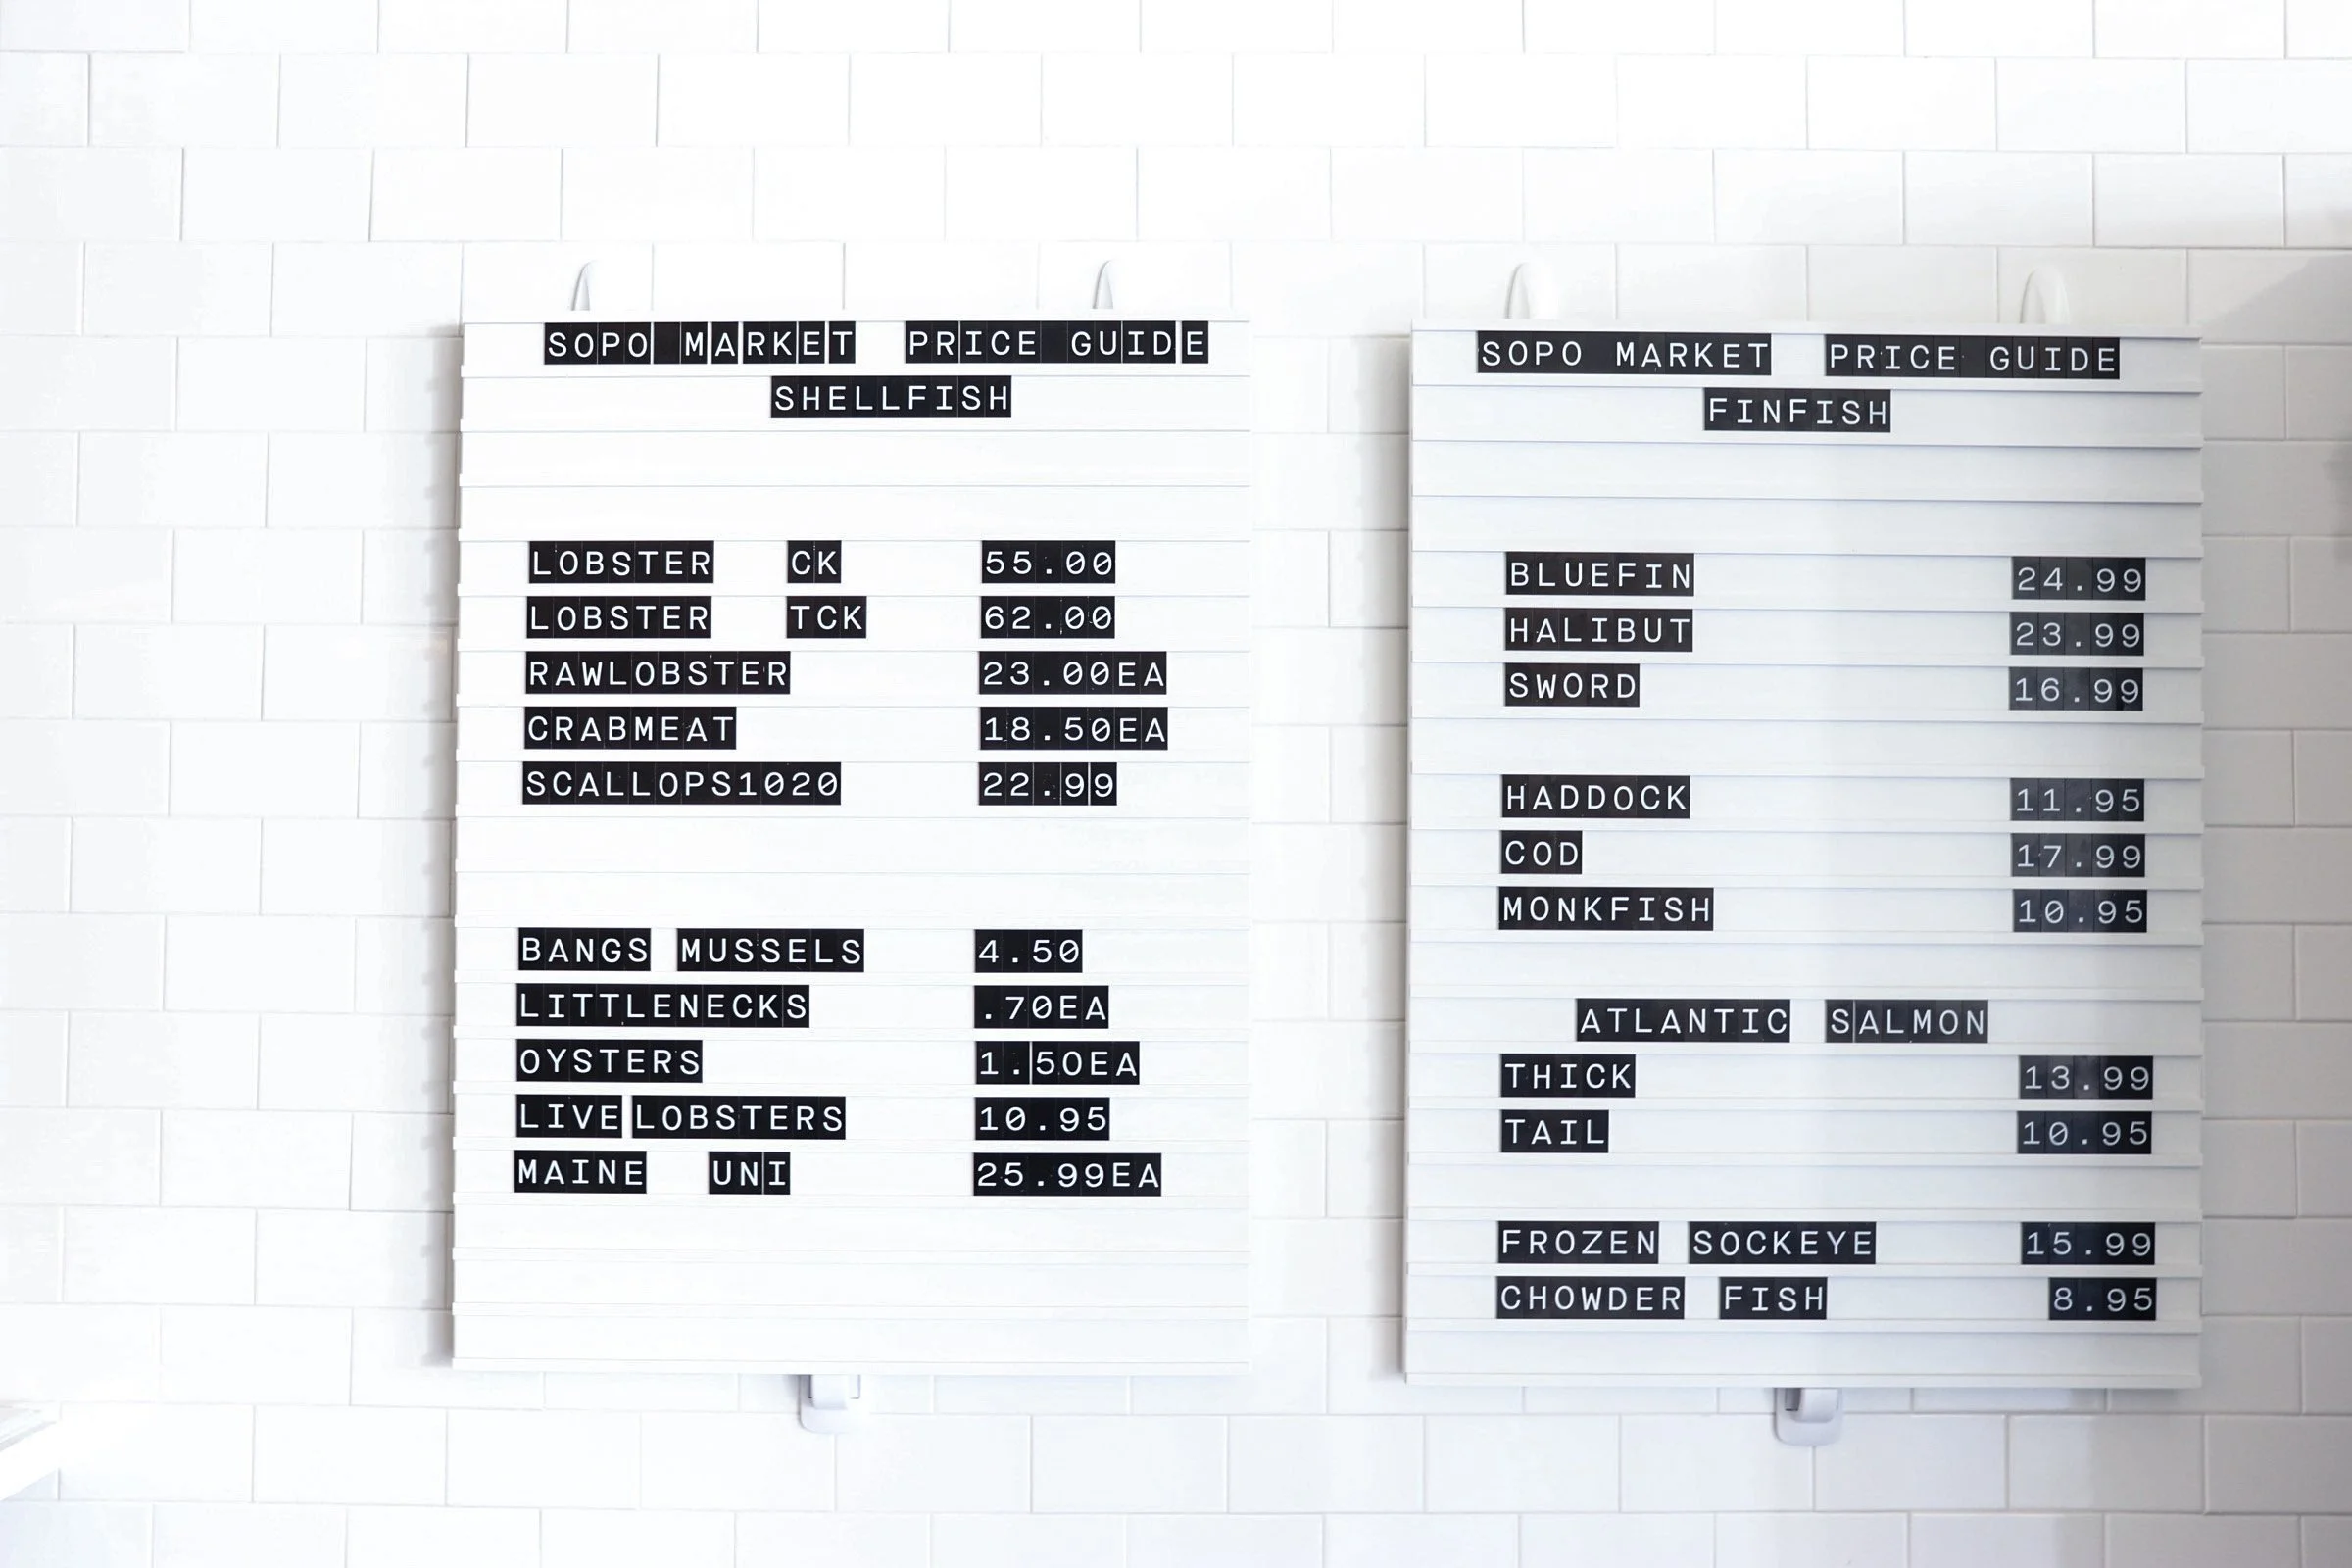 SOPO MARKET PRICE GUIDE
SHELLFISH
LOBSTER CK 55.00
LOBSTER TCK 62.00
RAWLOBSTER 23.00EA
CRABMEAT 18.50EA
SCALLOPS1020 22.99
BANGS MUSSELS 4.50
LITTLENECKS .70EA
OYSTERS 1.50EA
LIVE LOBSTERS 10.95
MAINE UNI 25.99EA
SOPO MARKET PRICE GUIDE
FINFISH
BLUEFIN 24.99
HALIBUT 23.99
SWORD 16.99
HADDOCK 11.95
COD 17.99
MONKFISH 10.95
ATLANTIC SALMON
THICK 13.99
TAIL 10.95
FROZEN SOCKEYE 15.99
CHOWDER FISH 8.95